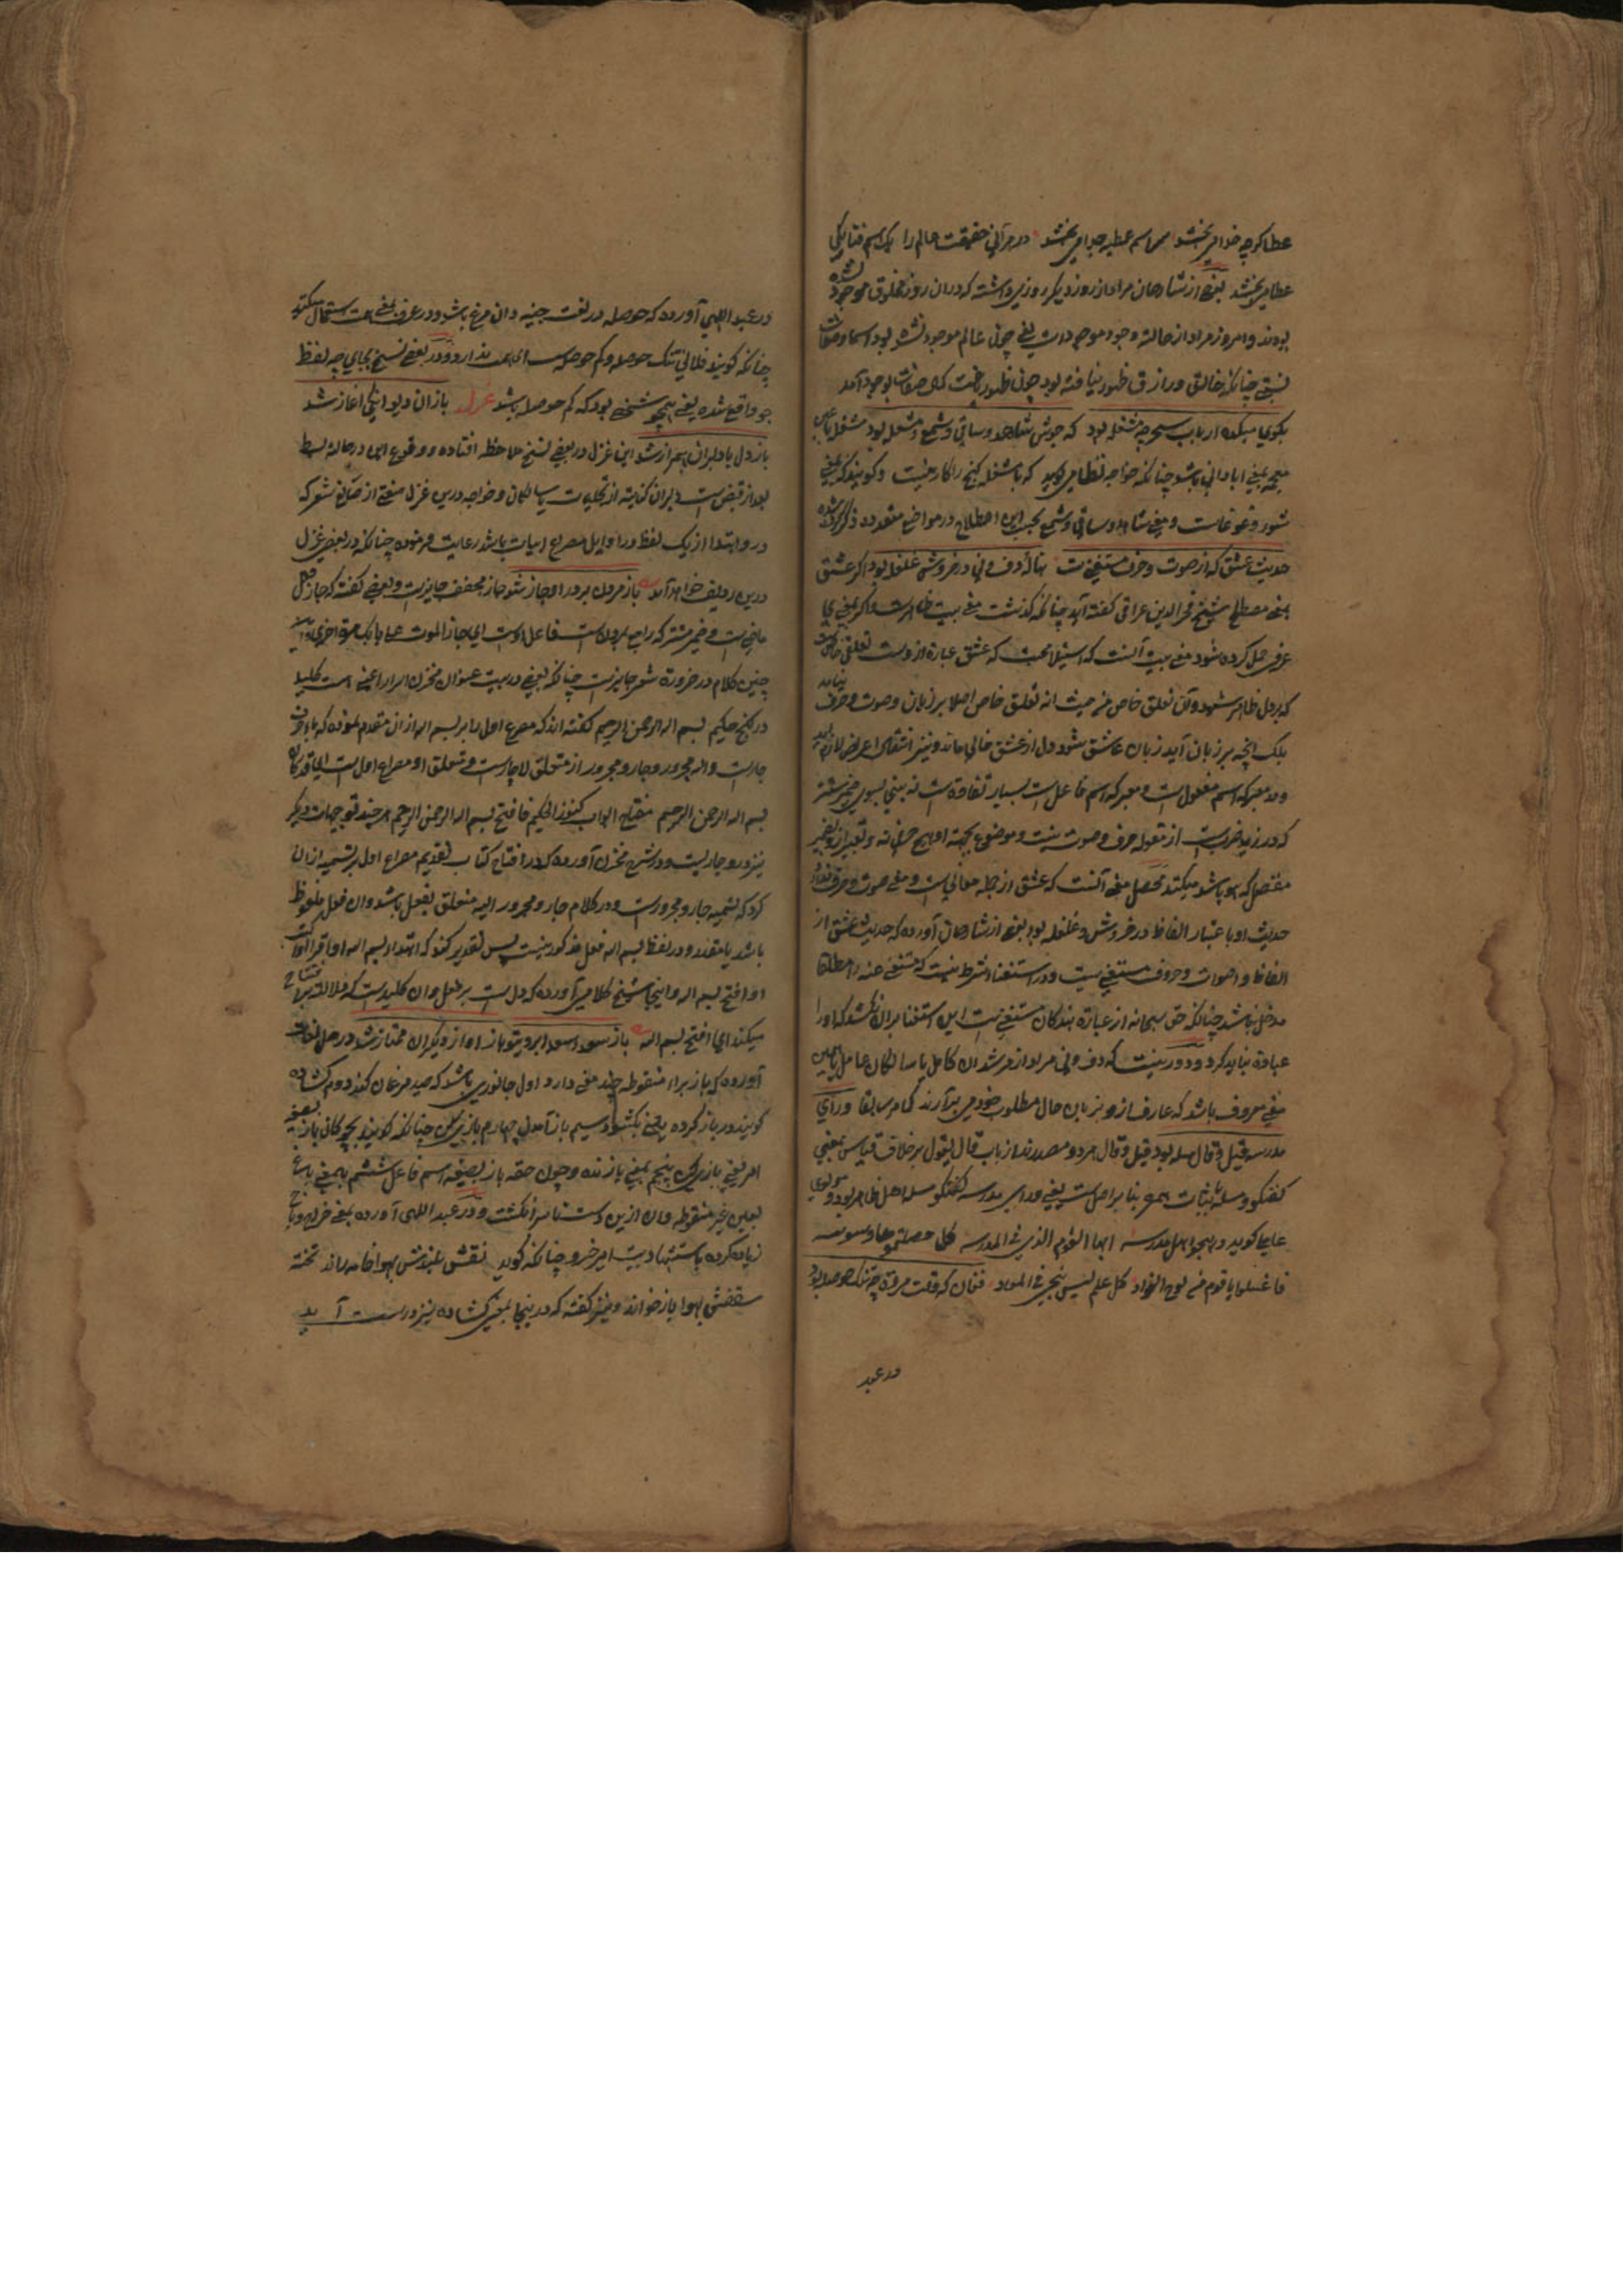 عطا کرچه خدا می بخشد هر اسم عطیه جدا می بخشد در هر آنی حقیقت عالم را یک اسم فنا یکی
عطا می بخشد بعضی از شارحان مراد از روز دیگر روزی داشته که دران روز مخلوق موجود نشده
بودند و امروز مراد از حالت وجود موجودات یعنی چون عالم موجود نشده بود اسما و صفات
نسبتی چنانکه خالق و رازق ظهور نیافته بود چون ظهور یافت کل صفات بوجود آمد
بکوی میکده ارباب سحر چه مشغله بود که جوش شاهد و ساقی و شمع و مشعله بود مشغله
بمعنی ابادانی باشد چنانکه خواجه نظامی کوید که با مشغله کنج را کار نیست و کویند که بمعنی
شور و غوغاست و معنی شاهد و ساقی و شمع بحسب این اصطلاح در مواضع متعدد ذکر کرده شده
حدیث عشق که از صوت و حرف مستغنی است بنالۀ دف و نی در خروش غلغله بود اکر عشق
بمعنی مصطلح شیخ فخر الدین عراقی کفته آید چنانکه کذشت معنی بیت ظاهر است و اکر بمعنی
عرفی حمل کرده شود معنی بیت آنست که استیلا محبت که عشق عبارة ازوست تعلقی خاص است
که بر دل ظاهر شود و آن تعلق خاص من حیث انه تعلق خاص اصلا بر زبان و صوت و حرف نیاید
بلک آنچه بر زبان آید زبان عاشق شود و دل از عشق خالی ماند و نیز انتقال اعراض لازم آید
و معبر که اسم مفعول است و معبر که اسم فاعل است بسیار تفاوت است نه بینی بسوی ضمیر مستتر
که در زید ضرب است از مقوله حرف و صوت نیست و موضوع بجهة او هیچ حرفی نه و تعبیر از و بضمیر
منفصل که هو باشد میکنند محصل معنی آنست که عشق از جمله معانی است و معنی صوت و حرف
حدیث او با عتبار الفاظ در خروش و غلغله بود بعضی از شارحان آورده که حدیث عشق از
الفاظ و اصوات و حروف مستغنی است و در استغنا شرط نیست که مستغنی عنه را مطلقا
مدخل نباشد چنانکه حق سبحانه از عبادة بندکان مستغنی است این استغنا بران نکشد که او را
عبادة نباید کرد و دور نیست که دف و نی مراد از مرشدان کامل یا سالکان عامل
معنی معروف باشد که عارف از و بزبان حال مطلوب خود می برآرند کما مر سابقا ورای
مدرسه قیل و قال مسله بود قیل و قال هر دو مصدرند از باب قال یقول بر خلاف قیاس بمعنی
کفتکو و مسله باثبات همزه بنا بر اصل است یعنی ورای مدرسه کفتکو مسله اهل ظاهر بود مولوی
علیها کوید در هجو اهل مدرسه ایها القوم الذی فی المدرسه کل ما حصلتموها وسوسه
فاغسلوا یا قوم من لوح الفؤاد کل علم لیس ینجی فی المعاد فغان که وقت مروة چه تنک حوصله بود
در عبد
در عبد اللهی آورده که حوصله در لغت جینه دان مرغ باشد و در عرف بمعنی همت استعمال میکنند
چنانکه کویند فلانی تنک حوصله و کم حوصله است ای همت ندارد و در بعضی نسخ بجای چه لفظ
جو واقع شده یعنی همچو شخصی بود که کم حوصله باشد غزل بازان دیوانکی اغاز شد
باز دل با دلبران همراز شد این غزل در بعضی نسخ ملاحظه افتاده و وقوع این در حالة بسط
بعد از قبض است دلبران کنایة از تجلیات یا سالکان و خواجه درین غزل صنعتی از صنایع شعر که
در و ابتدا از یک لفظ در اوایل مصراع ابیات باشد رعایت فرموده چنانکه در بعضی غزل
درین ردیف خواهد آمد باز مردن بر در او جاز شد جاز مخفف جایز است و بعضی کفته که جاز فعل
ماضی است و ضمیر مستتر که راجع بمردن است فاعل اوست ای جاز الموت علی بابک مرة اخری و
چنین کلام در ضرورة شعر جایز است چنانکه بعضی در بیت عنوان مخزن اسرار اعنی هست کلید
در کنج حکیم بسم الله الرحمن الرحیم کفته اند که مصرع اول را بر بسم الله از ان مقدم نموده که با حرف
جار است و الله مجرور و جار و مجرور از متعلق لا چار است و متعلق او مصراع اول است
بسم الله الرحمن الرحیم مفتاح ابواب کنوز الحکیم فافتح بسم الله الرحمن الرحیم هر چند توجیهات دیکر
نیز درو جاریست و در شرح مخزن آورده که در افتتاح کتاب تقدیم مصراع اول بر تسمیه از ان
کرد که تسمیه جار و مجرور است و در کلام جار و مجرور البته متعلق بفعل باشد و ان فعل ملفوظ
باشد یا مقدر و در لفظ بسم الله فعل مذکور نیست پس تقدیر کنند که ابتداء بسم الله او اقرا
او افتح بسم الله و اینجا شیخ کلامی آورده که دال است بر فعل و ان کلید است که دلالت بر افتتاح
میکند ای افتح بسم الله باز سوی او از دیکران ممتاز شد در حل لغات
آورده که باز براء منقوطه چند معنی دارد اول جانوری باشد که صید مرغان کند دوم کشاده
کویند در باز کرده یعنی بکشود سیم باز آمدن چهارم بازی کن چنانکه کویند بچه کان باز بصیغه
امر یعنی بازی کن پنجم بمعنی بازنده و چون حقه باز بصیغه اسم فاعل ششم بمعنی باع
بعین غیر منقوطه و ان ازین دست تا سر انکشت و در عبد اللهی آورده بمعنی خراج و باج
زیاده کرده باستشهاد بیت امیر خسرو چنانکه کوید نقش بلندش بهوا خامه راند تخته
سقفش بهوا باز خواند و نیز کفته که در ینجا بمعنی کشاده نیز درست آید